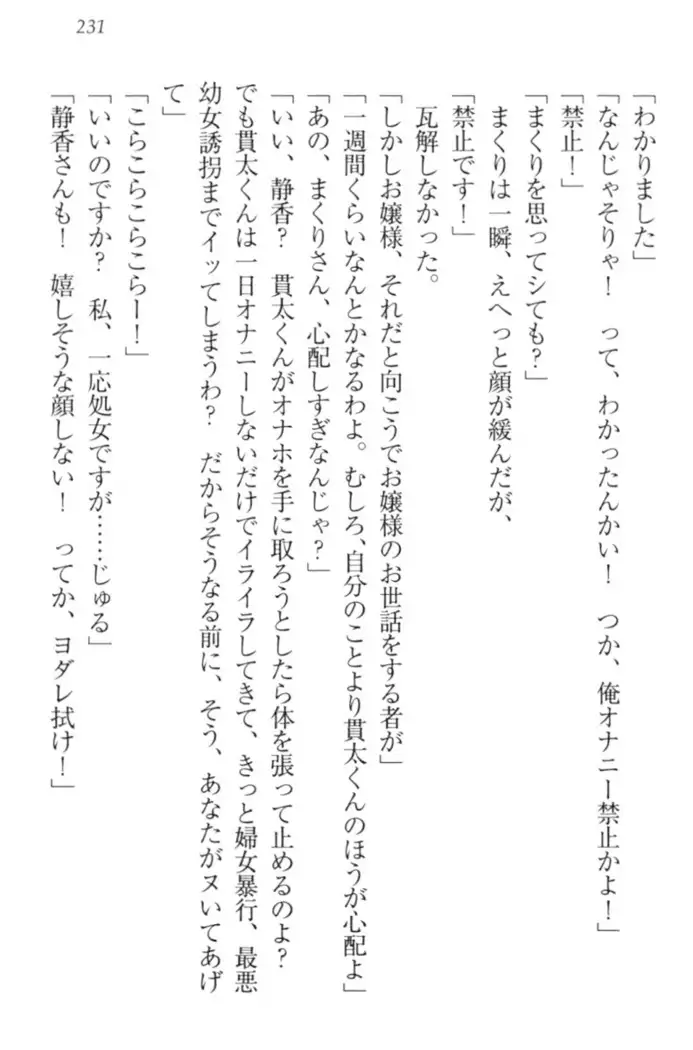 231
「わかりました」
「なんじゃそりゃ！　って、わかったんかい！　つか、俺オナニー禁止かよ！」
「禁止！」
「まくりを思ってシても？」
　まくりは一瞬、えへっと顔が緩んだが、
「禁止です！」
　瓦解しなかった。
「しかしお嬢様、それだと向こうでお嬢様のお世話をする者が」
「一週間くらいなんとかなるわよ。むしろ、自分のことより貫太くんのほうが心配よ」
「あの、まくりさん、心配しすぎなんじゃ？」
「いい、静香？　貫太くんがオナホを手に取ろうとしたら体を張って止めるのよ？
でも貫太くんは一日オナニーしないだけでイライラしてきて、きっと婦女暴行、最悪
幼女誘拐までイッてしまうわ？　だからそうなる前に、そう、あなたがヌいてあげ
て」
「こらこらこらこらー！」
「いいのですか？　私、一応処女ですが……じゅる」
「静香さんも！　嬉しそうな顔しない！　ってか、ヨダレ拭け！」